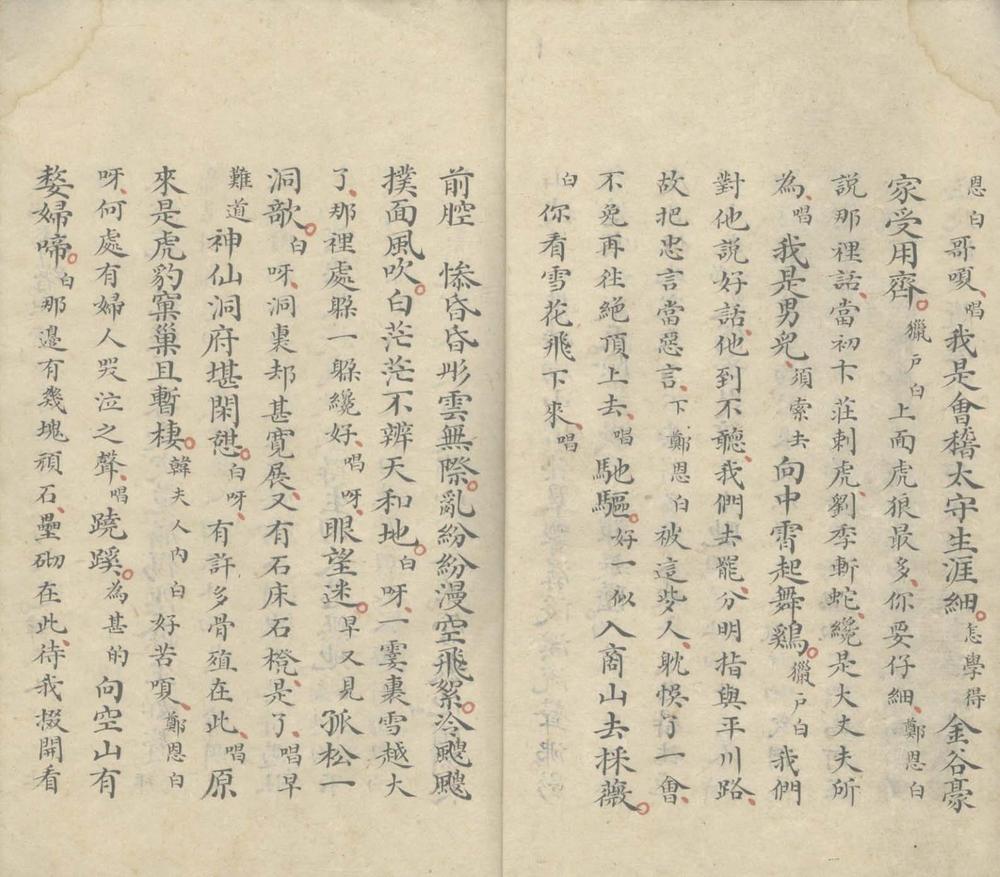 恩白哥嗄、唱我是會稽太守生涯細。怎學得金谷豪
家受用齊。獵戶白上面虎狼最多、你要仔細、鄭恩白
說那裡話、當初卞莊刺虎、劉季斬蛇、纔是大丈夫所
為、唱我是男兒、須索去向中霄起舞鷄。獵戶白我們
對他說好話、他到不聽、我們去罷、分明指與平川路、
故把忠言當惡言、下鄭恩白被這些人、躭悞了一會、
不免再徃絕頂上去、唱馳驅。好一似入商山去採薇。
白你看雪花飛下來、唱
前腔 慘昏昏彤雲無際。亂紛紛漫空飛絮。冷颼颼
撲面風吹。白茫茫不辨天和地。白呀、一霎裏雪越大
了、那裡處躱一躱纔好、唱呀眼望迷。早又見孤松一
洞欹。白呀、洞裏却甚寬展、又有石床石櫈、是了、唱早
難道神仙洞府堪閑憇。白呀、有許多骨殖在此、唱原
來是虎豹窠巢且暫棲。韓夫人內白好苦嗄、鄭恩白
呀、何處有婦人哭泣之聲、唱蹺蹊。為甚的向空山有
嫠婦啼。白那邊有幾塊頑石、壘砌在此、待我掇開看